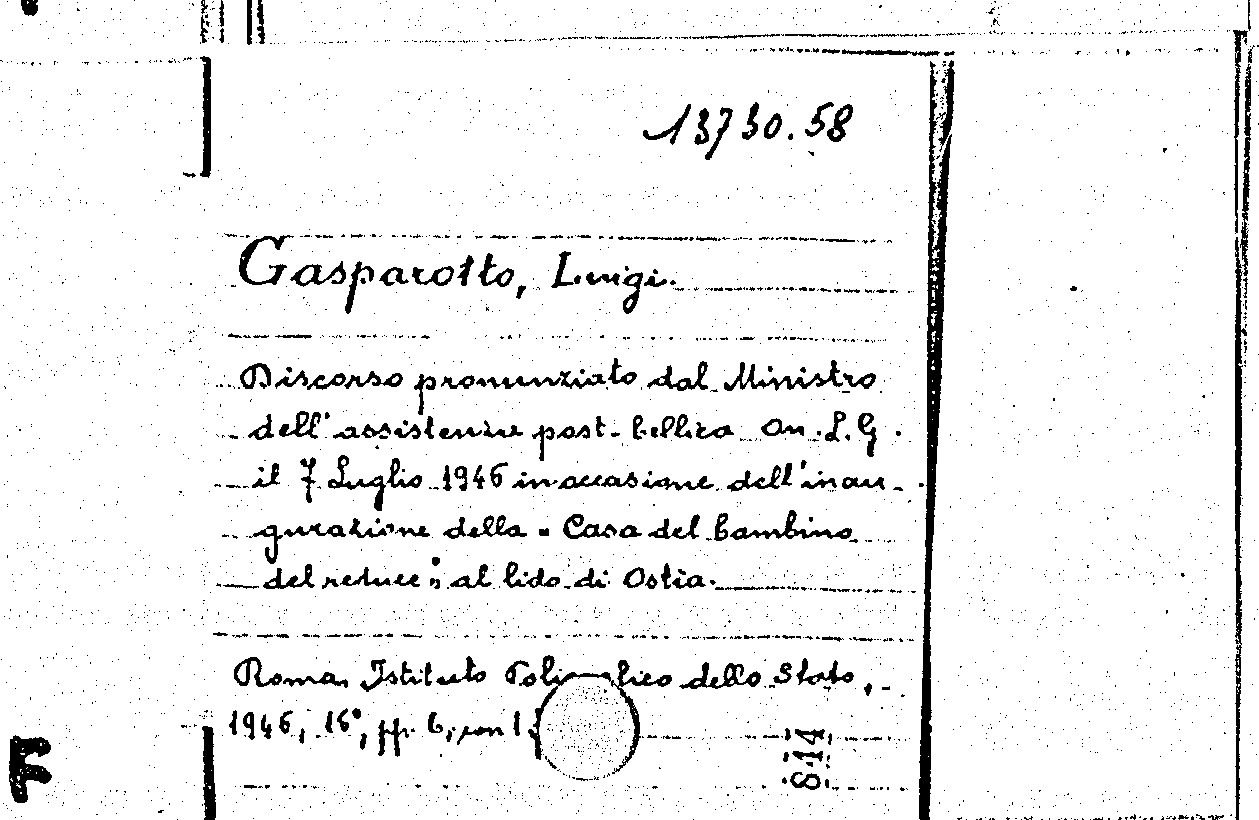 13730.58
Gasparotto, Luigi.
Discorso pronunziato dal Ministro
dell'assistenza post-bellica On. L. G.
il 7 Luglio 1946 in occasione dell'inau-
gurazione della "Casa del bambino
del reduce" al lido di Ostia.
Roma, Istituto dello Stato,
1946, 16°, pp. 6,
814
F